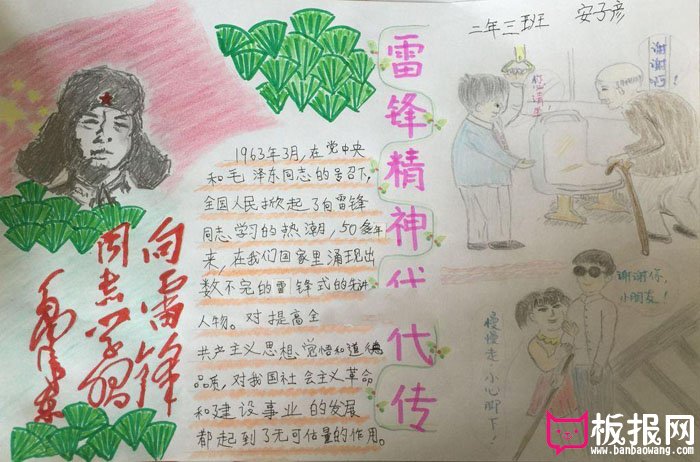 二年三班 安子彦
雷锋精神代代传
1963年3月,在党中央
和毛泽东同志的号召下,
全国人民掀起了向雷锋
同志学习的热潮,50多年
来,在我们国家里涌现出
数不完的雷锋式的先进
人物。对提高全
共产主义思想、觉悟和道德
品质,对我国社会主义革命
和建设事业的发展
都起到了无可估量的作用。
向雷锋
同志学习
毛泽东
您请坐
谢谢您
谢谢你,
小朋友!
慢慢走,小心脚下!
板报网
www.banbaowang.com